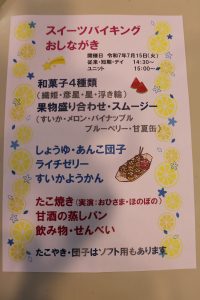 スイーツバイキング
おしながき
開催日 令和7年7月15日(火)
従来・短期・デイ 14:30～
ユニット 15:00～
和菓子4種類
(織姫・彦星・星・浮き輪)
果物盛り合わせ・スムージー
(すいか・メロン・パイナップル
ブルーベリー・甘夏缶)
しょうゆ・あんこ団子
ライチゼリー
すいかようかん
たこ焼き(実演:おひさま・ほのぼの)
甘酒の蒸しパン
飲み物・せんべい
たこやき・団子はソフト用もあります